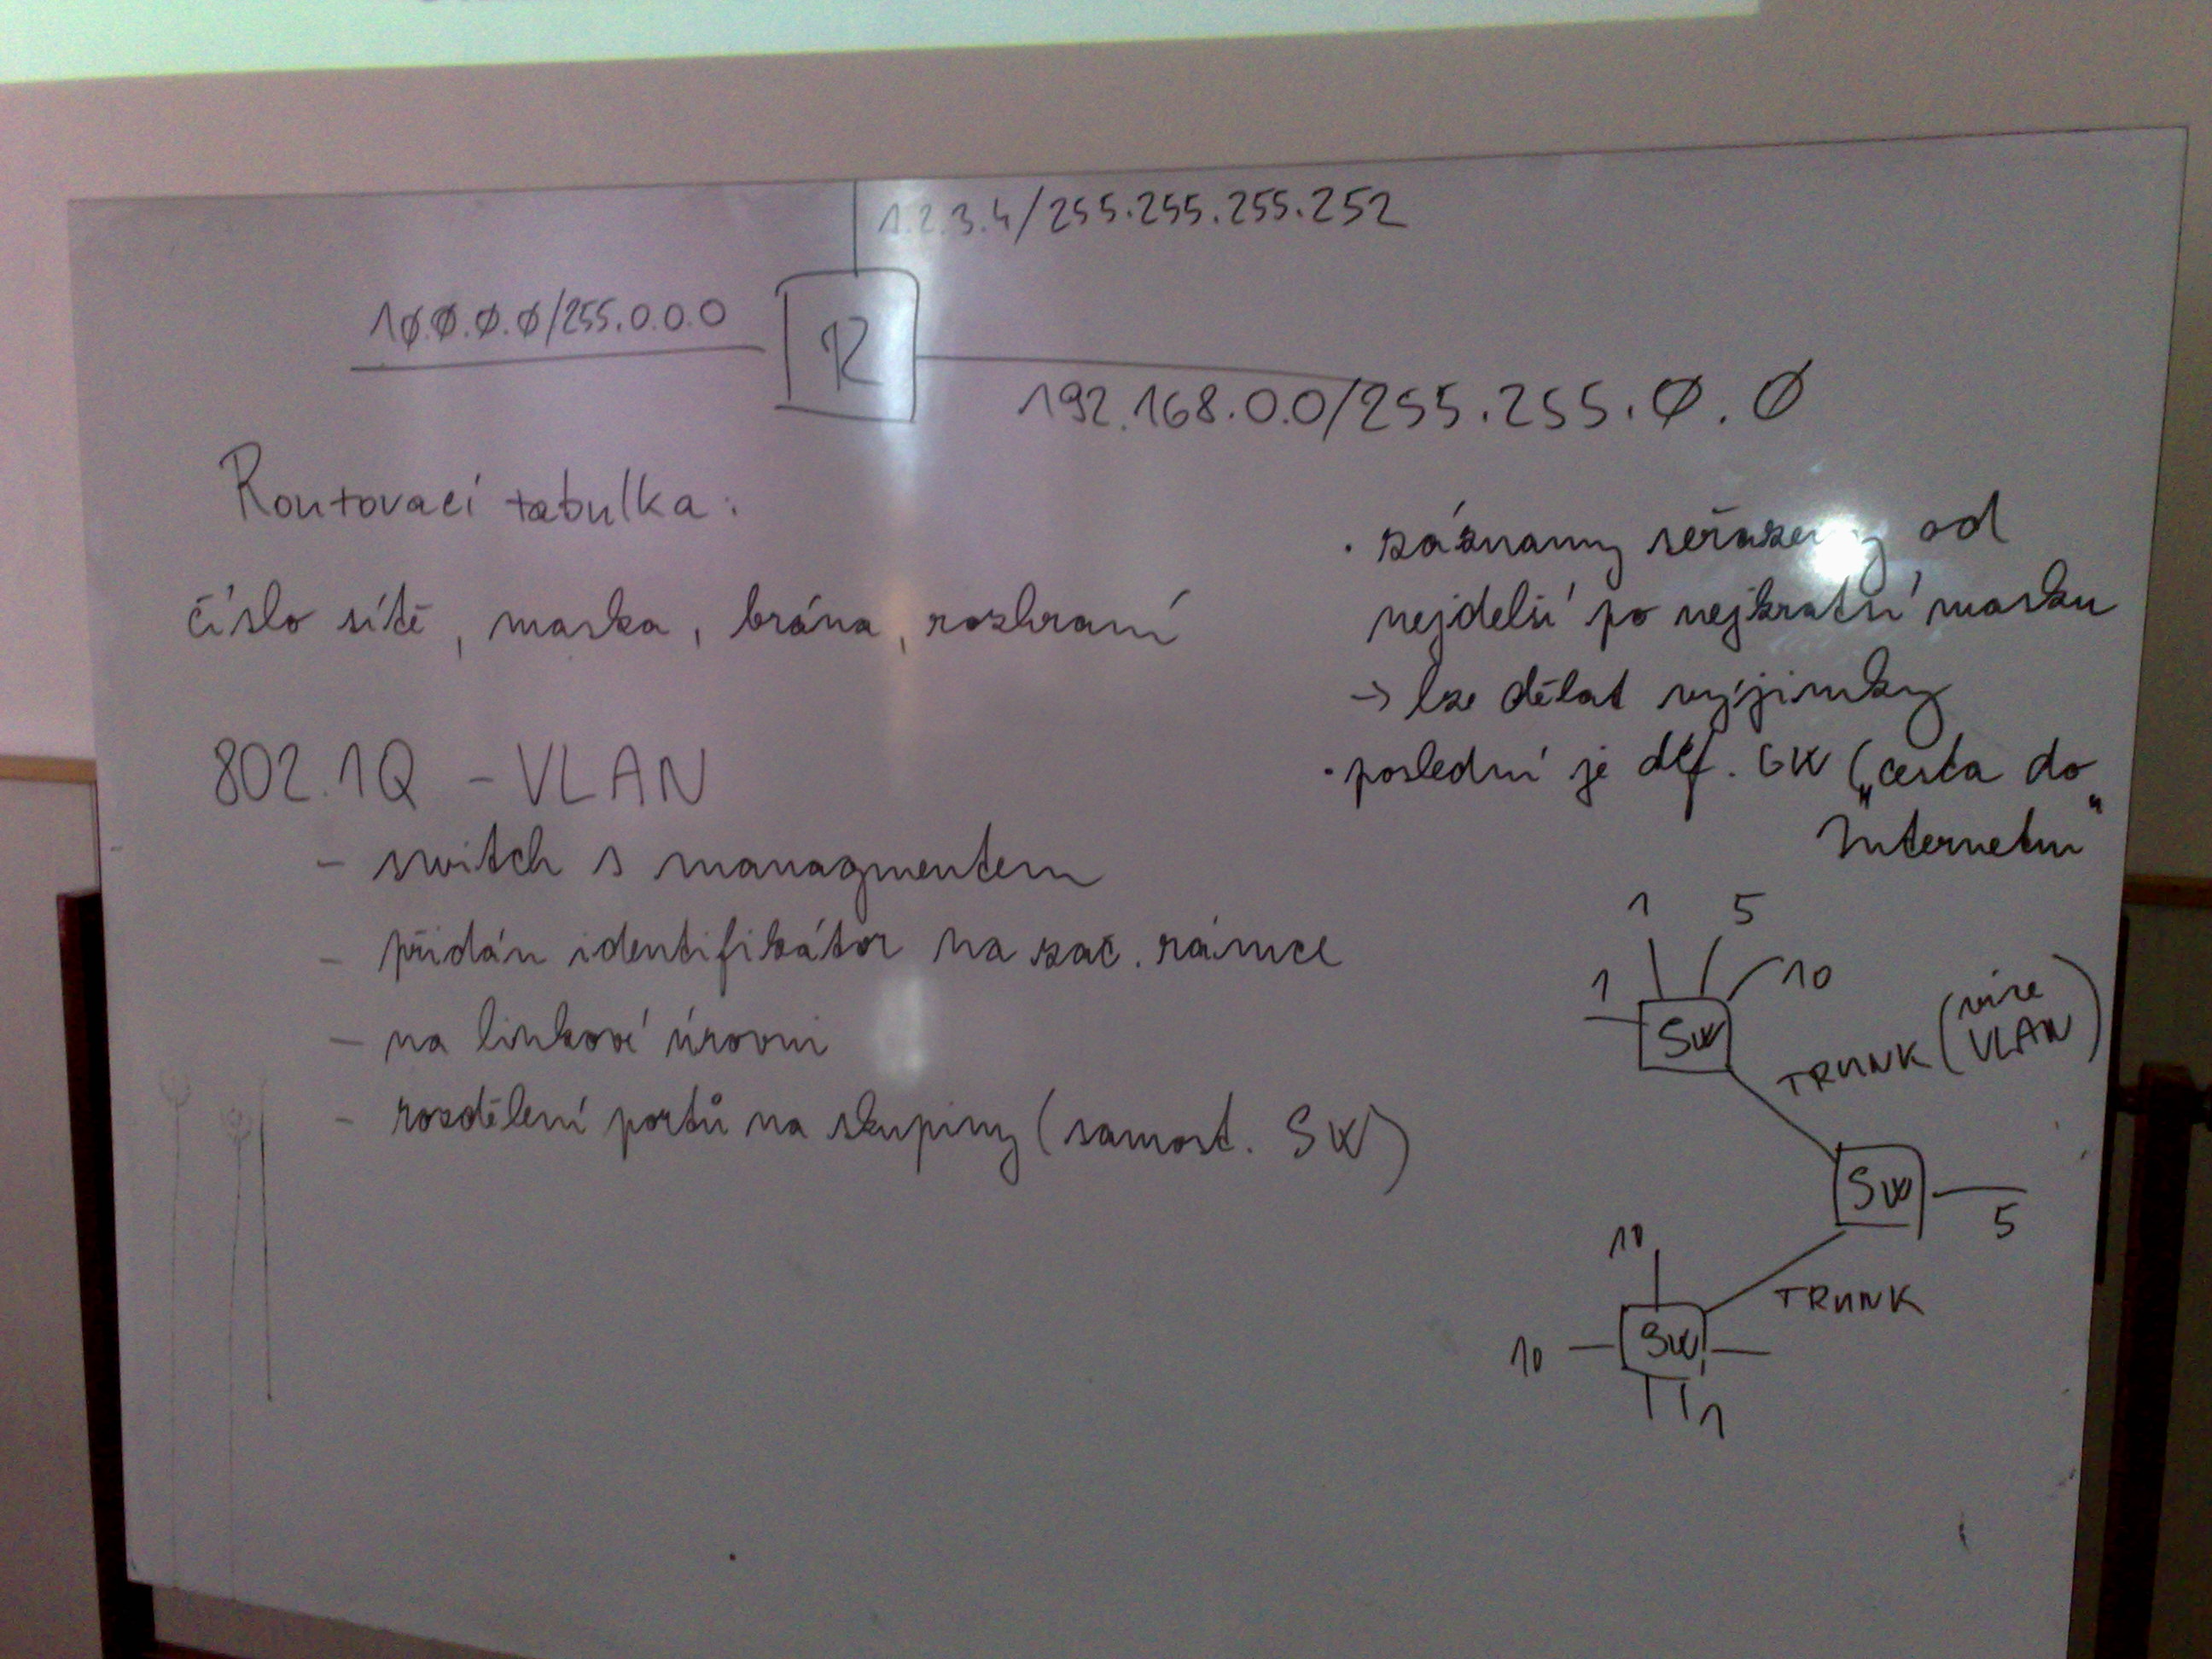 1.2.3.4/255.255.255.252
10.0.0.0/255.0.0.0
R
192.168.0.0/255.255.0.0
Routovací tabulka:
číslo sítě, maska, brána, rozhraní
· záznamy seřazeny od
nejdelší po nejkratší masku
→ lze dělat vyjímky
· poslední je def. GW („cesta do
Internetu"
802.1Q - VLAN
- switch s managmentem
- přidán identifikátor na zač. rámce
- na linkové úrovni
- rozdělení portů na skupiny (samost. SW)
1 5
1 10
SW
TRUNK (více
VLAN)
SW
5
10
TRUNK
10
SW
1